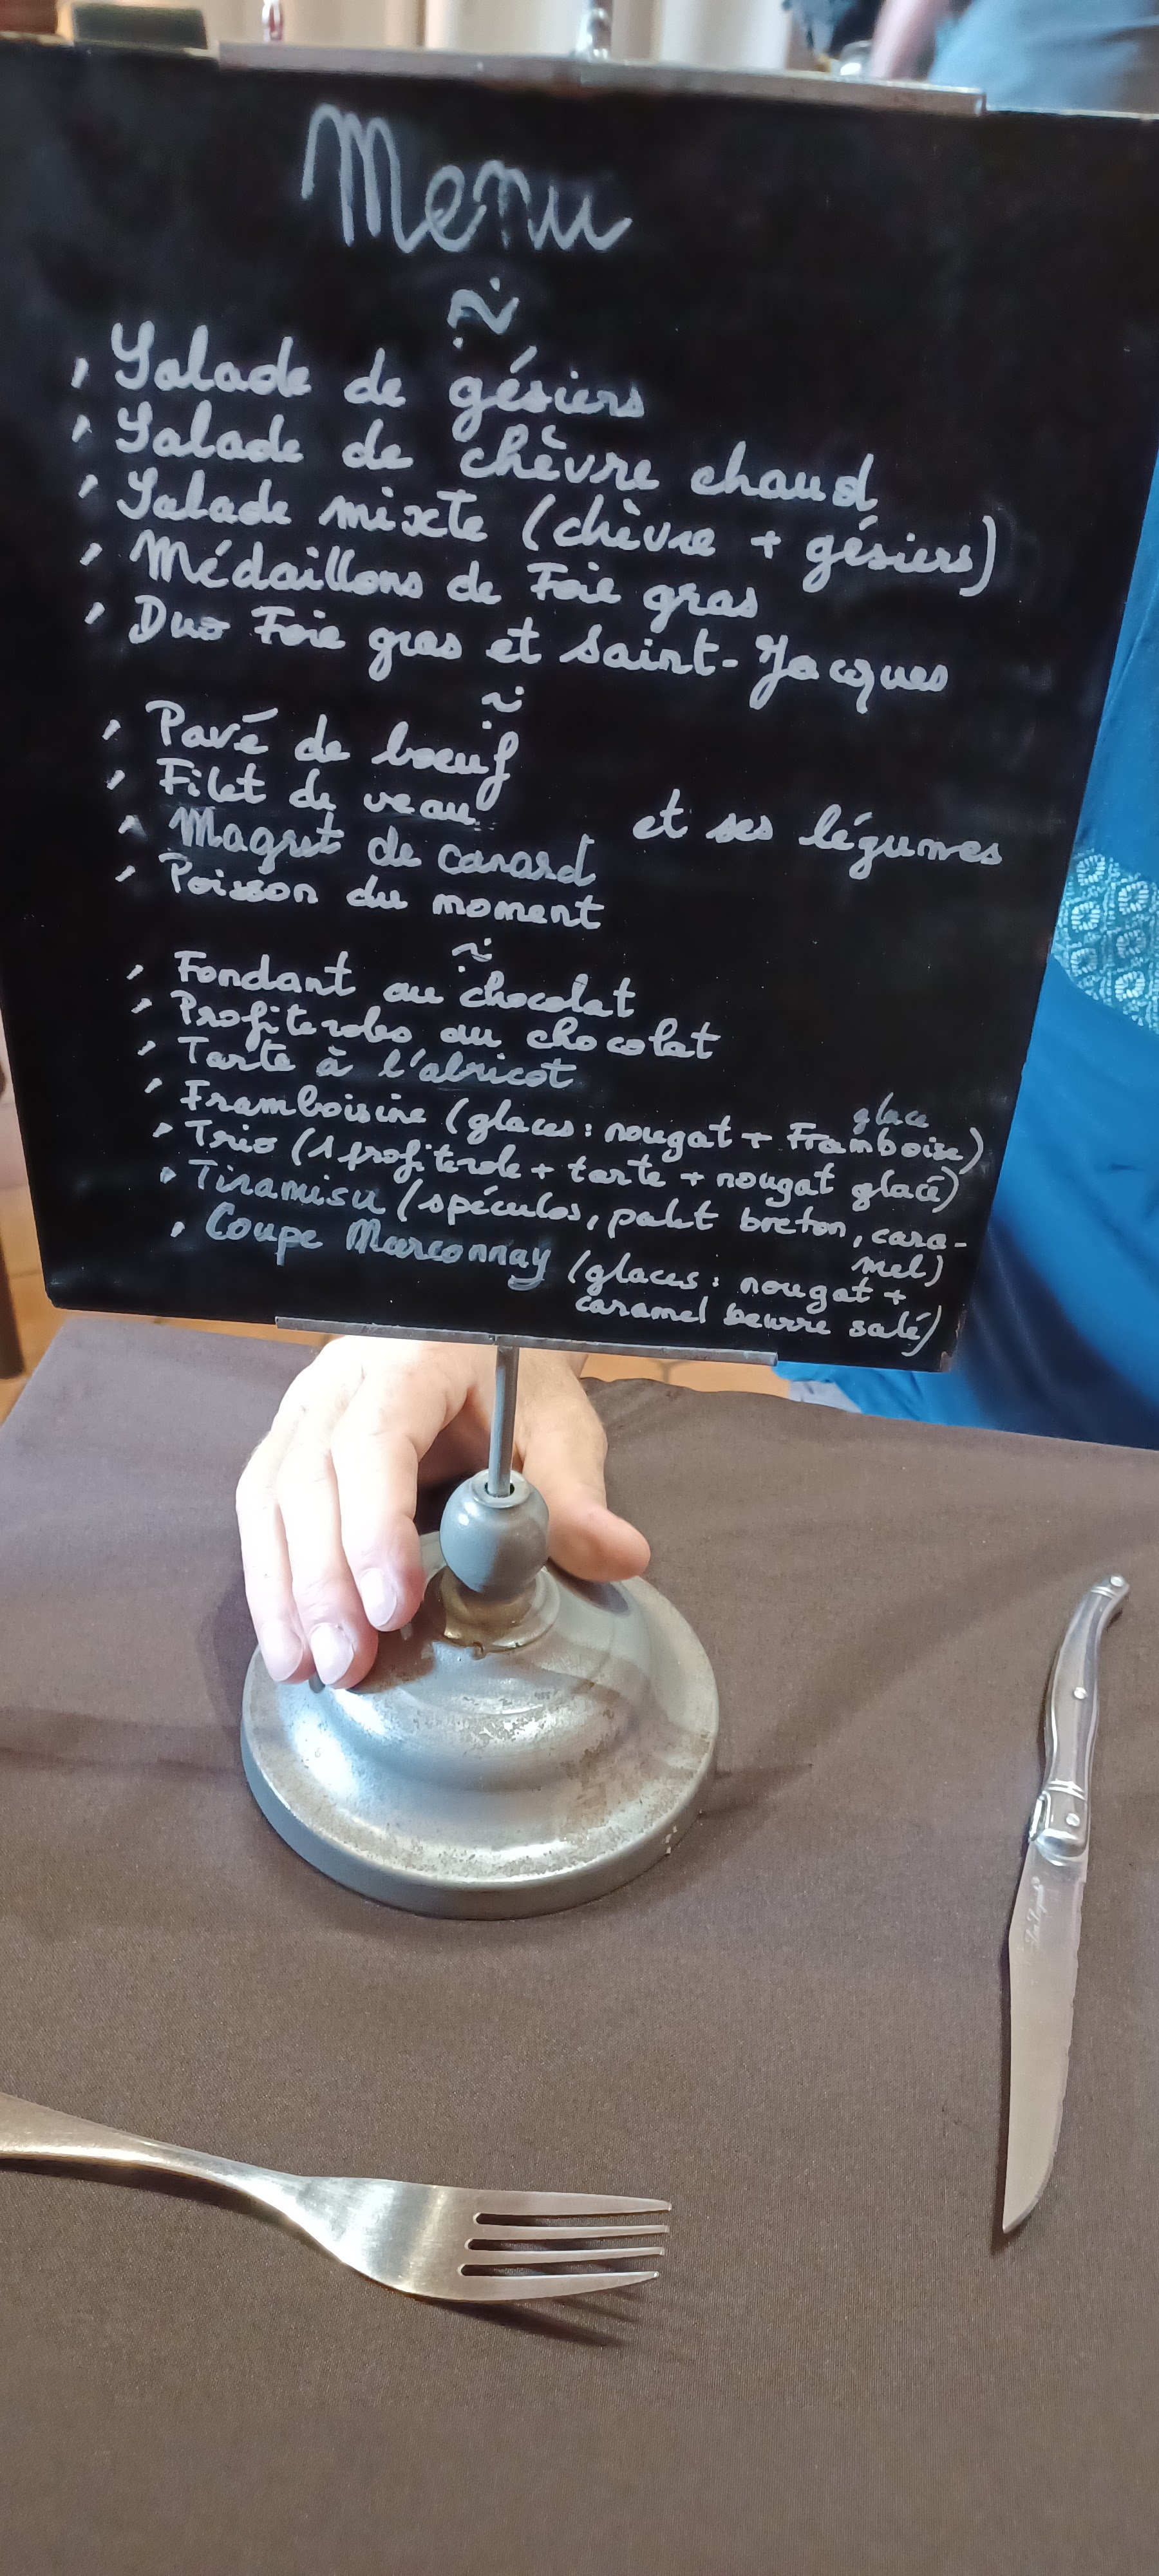 Menu
~
, Salade de gésiers
, Salade de chèvre chaud
, Salade mixte (chèvre + gésiers)
, Médaillons de Foie gras
, Duo Foie gras et Saint-Jacques
~
, Pavé de boeuf
, Filet de veau
et ses légumes
, Magret de canard
, Poisson du moment
~
, Fondant au chocolat
, Profiteroles au chocolat
, Tarte à l'abricot
, Framboisine (glaces: nougat + Framboise)
, Trio (1 profiterole + tarte + nougat glace glacé)
, Tiramisu (spéculos, palet breton, cara-
mel)
, Coupe Marconnay (glaces: nougat +
caramel beurre salé)